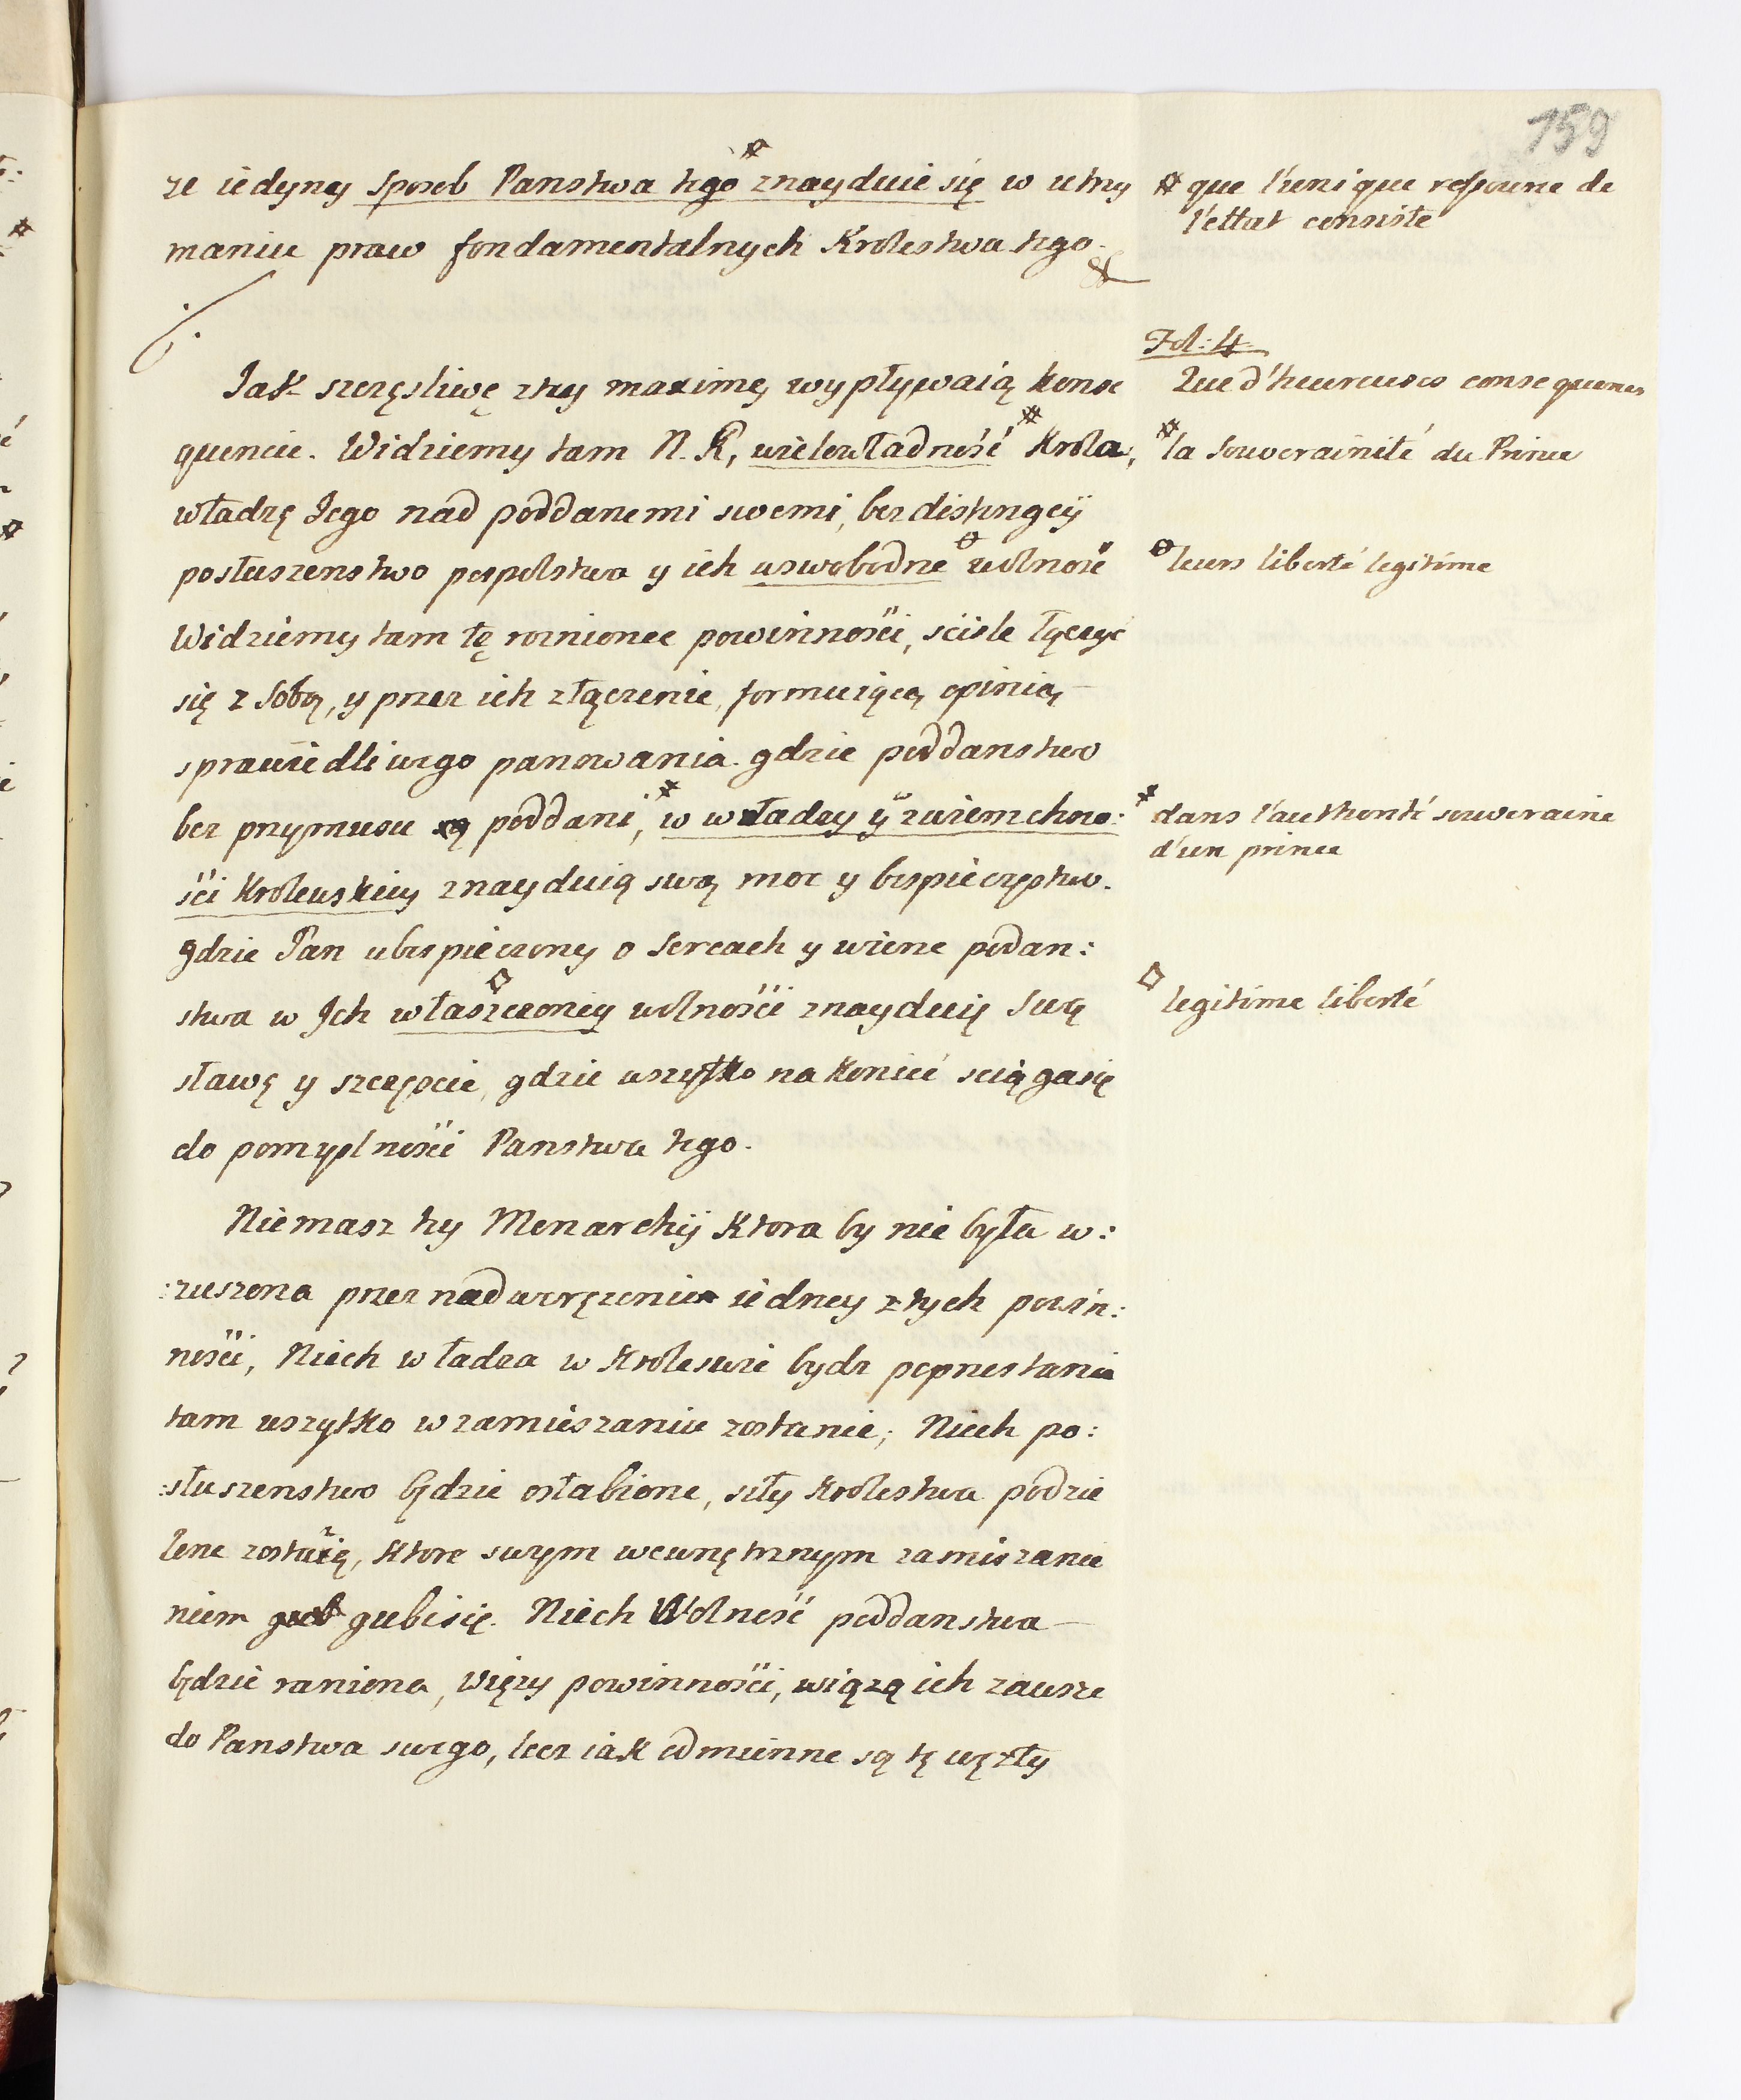 159
ze iedyny sposob Panstwa tego znayduie się w utrzy
maniu praw fondamentalnych Krolestwa tego.
# que l'unique ressource de
l'ettat consiste
Fol: 4
Jak szczęsliwę z tey maximy wypływaią konse
quencie. Widziemy tam N. K, wielowładność # Krola,
władzę Jego nad poddanemi swemi, bez distyngcÿ
posłuszenstwo pospolstwa y ich uswobodne wolność
Widziemy tam tę roznionce powinności, sciśle łączyć
się z sobą, y przez ich złączenie, formuiącą opinią
sprawiedliwego panowania. gdzie poddanstwo
bez przymusu są poddani, # w władzy y zwiemchno:
ści Krolewskiey znayduią swą moc y bespieczęstwo.
gdzie Pan ubespieczony o sercach y wierze podan:
stwa w Ich właszczoney wolności znayduię swą
sławę y szczęscie, gdzie wszytko na koniec sciąga się
do pomyslności Panstwa tego.
Que d'heureuses consequences
# la souverainité du Prince
leurs liberté legitime
# dans l'authorité souveraine
d'un prince
legitime liberté
Niemasz tey Monarchÿ ktora by nie była w:
:zruszona przez nadwerężenie iedney z tych powin:
ności, Niech władza w Krolestwie bydz poprzestanie
tam wszytko w zamieszaniu zostanie; Niech po:
:słuszenstwo będzie osłabione, siły Krolestwa podzie
lone zostaią, ktore swym wewnętrznym zamiszanie
niem gubi się. Niech Wolność poddanstwa
będzie raniona, Więzy powinności, wiążą ich zawsze
do Panstwa swego, lecz iak odmienne są tę węzły